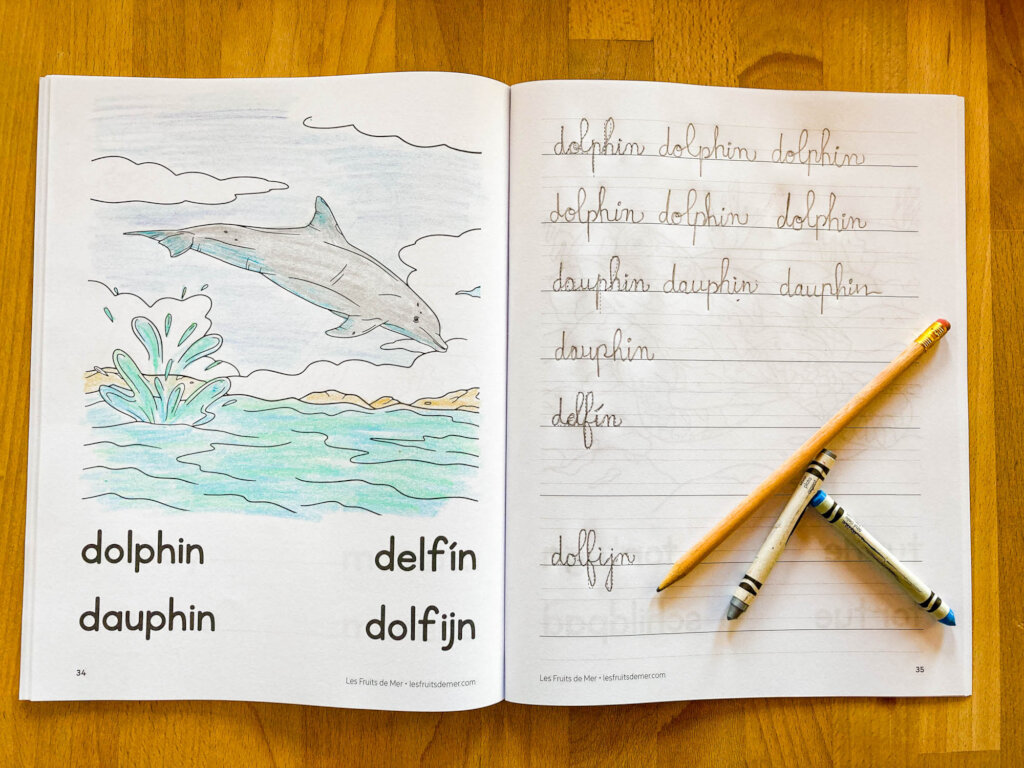 dolphin delfín
dauphin dolfijn
34
Les Fruits de Mer • lesfruitsdemer.com
dolphin dolphin dolphin
dolphin dolphin dolphin
dauphin dauphin dauphin
dauphin
delfín
dolfijn
Les Fruits de Mer • lesfruitsdemer.com
35